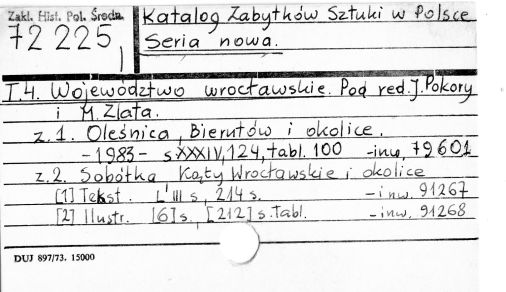 Zakł. Hist. Pol. Środn.
72 225
Katalog Zabytków Sztuki w Polsce
Seria nowa.
T.4. Województwo wrocławskie. Pod red. J. Pokory
i M. Zlata.
z.1. Oleśnica, Bierutów i okolice.
-1983- s XXXIV, 124, tabl. 100 -inw. 79601
z.2. Sobótka Kąty Wrocławskie i okolice
[1] Tekst. L'III s, 214 s. -inw. 91267
[2] Ilustr. [6] s, [212] s. Tabl. -inw. 91268
DUJ 897/73. 15000